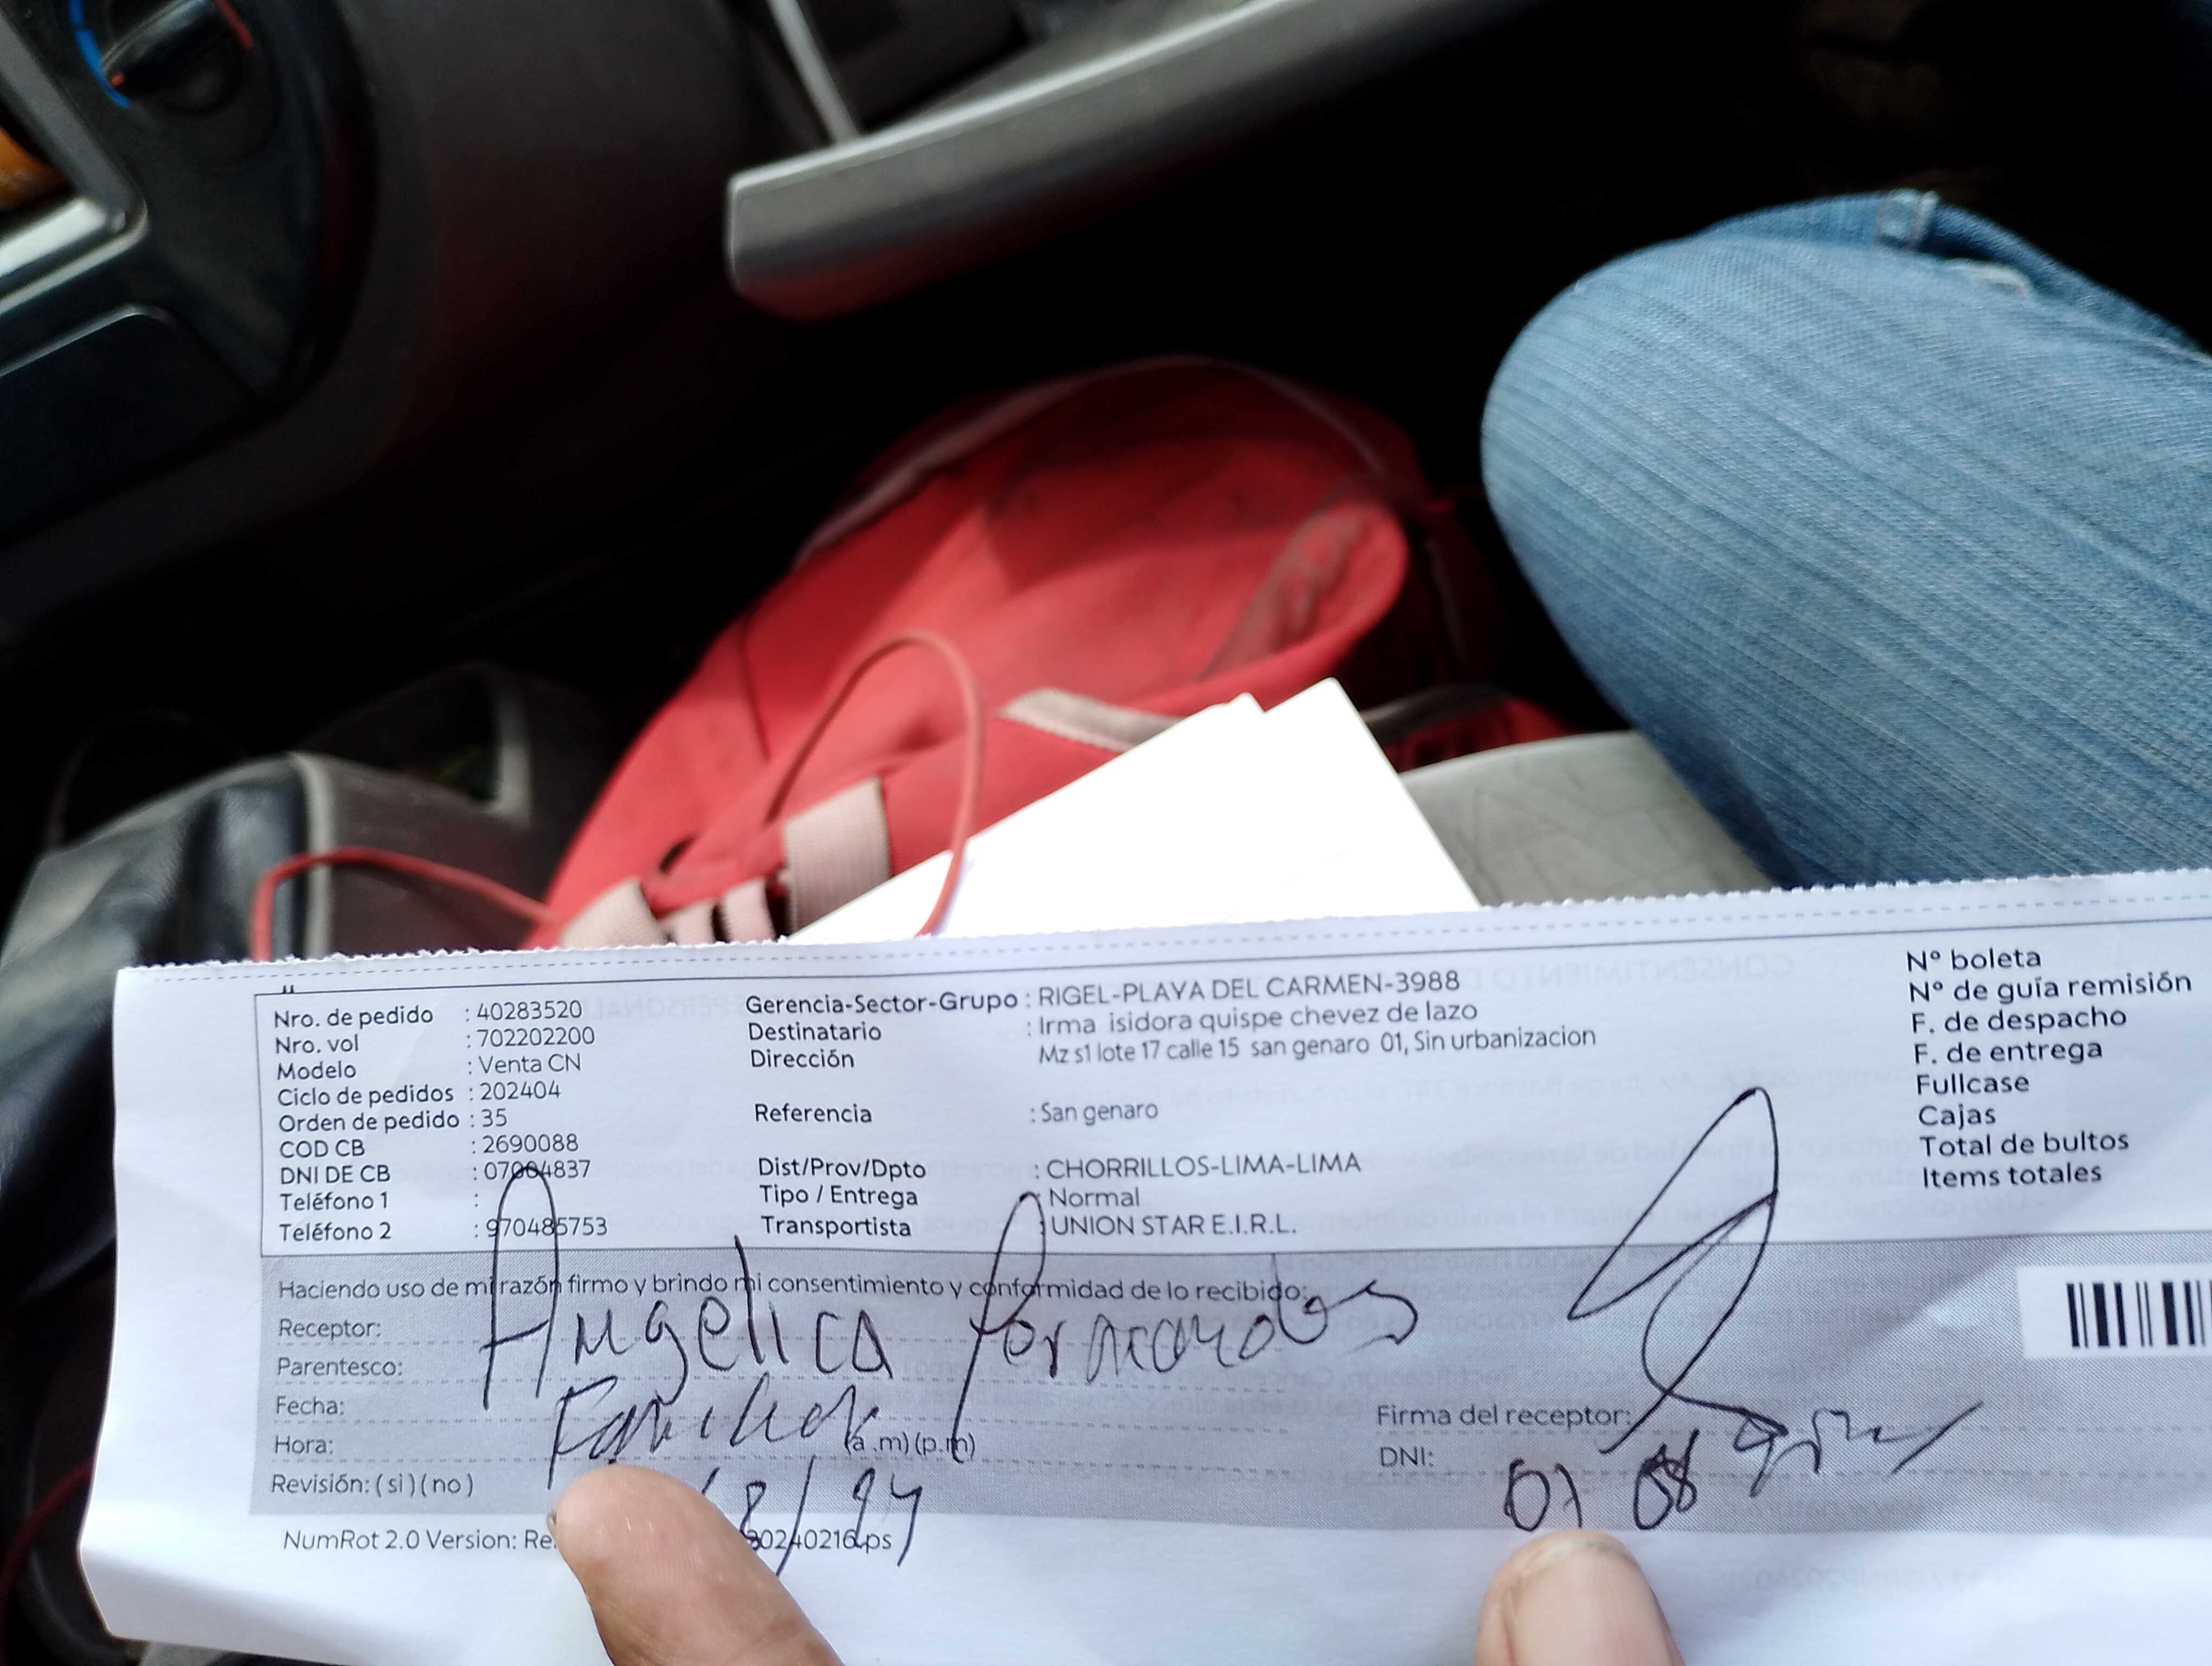 Nro. de pedido : 40283520
Nro. vol : 702202200
Modelo : Venta CN
Ciclo de pedidos : 202404
Orden de pedido : 35
COD CB : 2690088
DNI DE CB : 07004837
Teléfono 1 :
Teléfono 2 : 970485753
Gerencia-Sector-Grupo : RIGEL-PLAYA DEL CARMEN-3988
Destinatario : Irma isidora quispe chevez de lazo
Dirección Mz s1 lote 17 calle 15 san genaro 01, Sin urbanizacion
Referencia : San genaro
Dist/Prov/Dpto : CHORRILLOS-LIMA-LIMA
Tipo / Entrega : Normal
Transportista : UNION STAR E.I.R.L.
N° boleta
N° de guía remisión
F. de despacho
F. de entrega
Fullcase
Cajas
Total de bultos
Items totales
Haciendo uso de mi razón firmo y brindo mi consentimiento y conformidad de lo recibido:
Receptor: Angelica
Parentesco:
Fecha:
Hora: (a.m) (p.m)
Revisión: (si) (no)
Firma del receptor:
DNI:
NumRot 2.0 Version: Re
20240216.ps